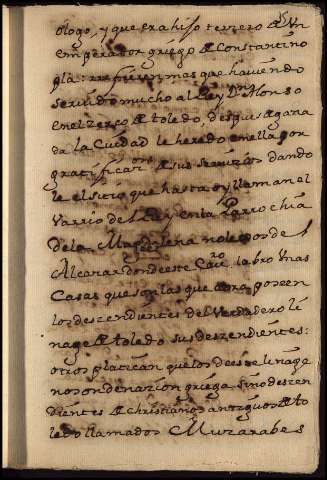 ologo, y que era hijo tercero de un
emperador griego de Constantino
pla: refieren mas que haviendo
servido mucho al Rey Dn Alonso
en el zerco de toledo, despues de gana
da la Ciudad le heredo en ella por
gratificacion de sus servizios dando
le el sitio que hasta oy llaman el
varrio del Rey en la Parrochia
de la Magdalena no lexos del
Alcazar donde este Cavro labro unas
Casas que son las que aora poseen
los descendientes del verdadero li
nage de toledo sus deszendientes:
otros platican que los de este linage
no son de nazion griega, sino deszen
dientes de christianos antiguos de to
ledo llamados Muzarabes